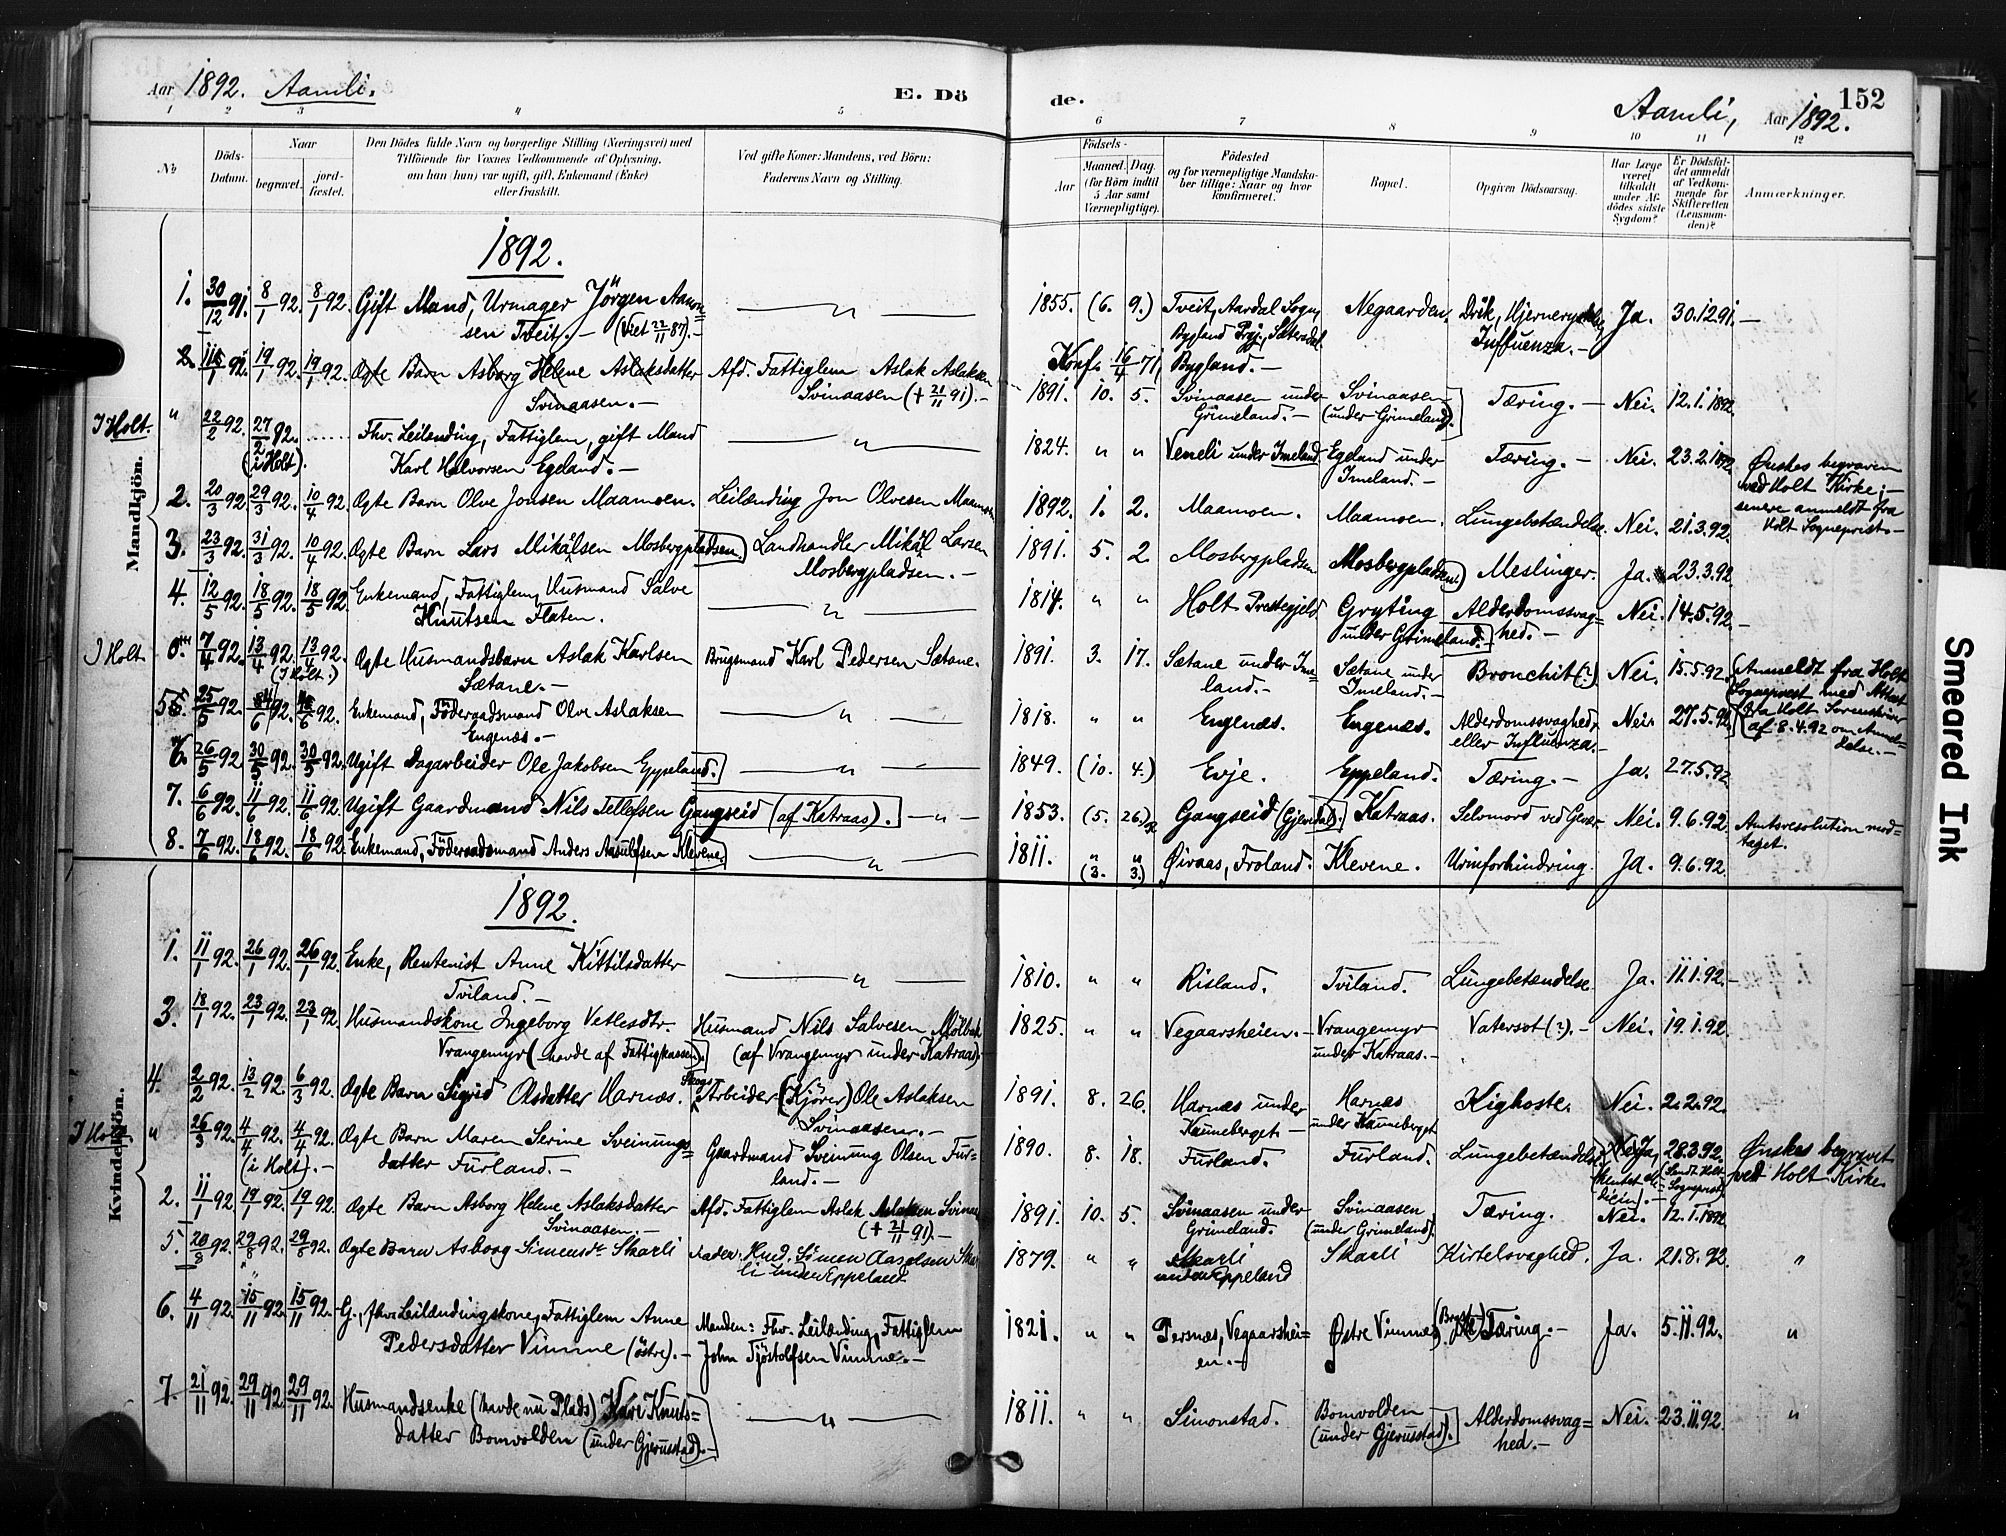 Aar 1892. Aamli.
E. Dö
de.
Aamli, Aar 1892.
152
1 2 3 4 5 6 7 8 9 10 11 12
No
Döds-
Datum.
Naar
begravet.
jord-
fæstet.
Den Dödes fulde Navn og borgerlige Stilling (Næringsvei) med
Tilföiende for Voxnes Vedkommende af Oplysning,
om han (hun) var ugift, gift, Enkemand (Enke)
eller fraskilt.
Ved gifte Koner: Mandens, ved Börn:
Faderens Navn og Stilling.
Födsels-
Aar
Maaned. Dag.
(for Börn indtil
5 Aar samt
Værnepligtige).
Födested
og for værnepligtige Mandska-
ber tillige: Naar og hvor
konfirmeret.
Bopæl.
Opgiven Dödsaarsag.
Har Læge
været
tilkaldt
under Af-
dödes sidste
Sygdom?
Er Dödsfal-
det anmeldt
af Vedkom-
mende for
Skifteretten
(Lensman-
den)?
Anmærkninger.
Mandkjön.
1892.
1. 30/12 91. 8/1 92. 8/1 92. Gift Mand, Urmager Jörgen Aanon=
sen Tveit. - (Viet 22/11 87). -
1855. (6. 9.) Tveit, Aardal Sogn, Negaarden. Drik, Hjernerystelse, Ja. 30.12.91. -
Bygland Prgj., Sætersdal. Influenza. -
Konf. 16/4 71 Bygland. -
2. 11/1 92. 19/1 92. 19/1 92. Ogte Barn Asborg Helene Aslaksdatter Afd. Fattiglem Aslak Aslaksen
Svinaasen. - Svinaasen (+ 21/11 91). -
1891. 10. 5. Svinaasen under Svinaasen Tæring. - Nei. 12.1.1892.
Grimeland. - (under Grimeland).
I Holt. " 22/2 92. 27/2 92. ...... Fhv. Leilending, Fattiglem, gift Mand
(i Holt). Karl Halvorsen Egeland. -
1824. " " Veneli under Imeland Egeland under Tæring. - Nei. 23.2.1892 Ønskes begraven
Imeland. - ved Holt Kirke; -
senere anmeldt fra
Holt Sogneprest. -
2. 20/3 92 29/3 92. 10/4 92. Ogte Barn Olve Jonsen Maamoen. Leilænding Jon Olvesen Maamoen
1892. 1. 2. Maamoen. Maamoen. Lungebetændelse. Nei. 21.3.92.
3. 23/3 92. 31/3 92. 10/4 92. Ogte Barn Lars Mikalsen Mosbergpladsen. Landhandler Mikal Larsen
Mosbergpladsen. -
1891. 5. 2 Mosbergpladsen Mosbergpladsen) Meslinger. Ja. 23.3.92
4. 12/5 92. 18/5 92. 18/5 92. Enkemand, Fattiglem, Husmand Salve
Knutsen Flaten.
1814. " " Holt Prestegjeld. Gryting Alderdomssvag= Nei. 14.5.92. -
under Grimeland. hed. -
I Holt. 0. 7/4 92. 13/4 92. 13/4 92. Ogte Husmandsbarn Aslak Karlsen Brugsmand Karl Pedersen Sætane.
(I Holt.) Sætane. -
1891. 3. 17. Sætane under Ime= Sætane under Bronchit (?) Nei. 15.5.92. (Anmeldt fra Holt
land. - Imeland. - Sogneprest med Attest
fra Holt Sorenskriver
af 8.4.92 om Anmel-
delse. -
5. 25/5 92. 92. 92. Enkemand, Föderaadsmand Olve Aslaksen
Engenæs. -
1818. " " Engenæs. Engenæs. Alderdomssvaghed Nei. 27.5.92.
eller Influenza. -
6. 26/5 92 30/5 92. 30/5 92. Ugift Dagarbeider Ole Jakobsen Eppeland.
1849. (10. 4.) Evje. Eppeland. Tæring. - Ja. 27.5.92
7. 6/6 92. 11/6 92. 11/6 92. Ugift Gaardmand Nils Tellefsen Gangseid (af Katraas). - " -
1853. (5. 26.) Gangseid (Gjevedal). Katraas. Selvmord ved Gevær Nei. 9.6.92. Amtsresolution mod=
taget.
8. 7/6 92. 18/6 92. 18/6 92. Enkemand, Föderaadsmand Anders Aasulfsen Klevene.
1811. (3. 3.) Øivaas, Froland. Klevene. Urinforhindring. Ja. 9.6.92
Kvindekjön.
1892.
1. 11/1 92. 26/1 92. 26/1 92. Enke, Rentenist Anne Kittilsdatter
Tviland. -
1810. " " Risland. Tviland. Lungebetændelse. Ja. 11.1.92. -
3. 18/1 92. 23/1 92. 23/1 92. Husmandskone Ingeborg Vetlesdtr. Husmand Nils Salvesen Mölbak
Vrangemyr (havde af Fattigkassen). (af Vrangemyr under Katraas)
1825. " " Vegaarsheien. - Vrangemyr Vatersot (?). - Nei. 19.1.92.
under Katraas. -
4. 2/2 92. 13/2 92. 6/3 92. Ogte Barn Sigrid Olsdatter Harnæs. Skogs Arbeider (Kjörer) Ole Aslaksen
Svinaasen. -
1891. 8. 26. Harnæs under Harnæs Kighoste. Nei. 2.2.92.
Kauneberget. - under Kauneberget
I Holt " 26/3 92. 4/4 92. 4/4 92. Ogte Barn Maren Serine Sveinungs= Gaardmand Sveinung Olsen Fur=
(i Holt). - datter Furland. - land. -
1890. 8. 18. Furland. Furland. Lungebetændelse Ja, 28.3.92. Ønskes begravet
(hentet Me- (Sendt Holt ved Holt Kirke
dicin). - Sogneprest)
2. 11/1 92. 19/1 92. 19/1 92. Ogte Barn Asborg Helene Aslaksdatter Afd. Fattiglem Aslak Aslaksen Svinaas
Svinaasen. - (+ 21/11 91). -
1891. 10. 5. Svinaasen under Svinaasen Tæring. Nei. 12.1.1892
Grimeland. (under Grimeland).
5. 20/8 92. 29/8 92. 29/8 92. Ogte Barn Asborg Simensdr Skarli Fader: Husmd. Simen Aasolsen Skar
li under Eppeland.
1879. " " Skarli Skarli Kirtelsvaghed. Ja. 21.8.92. "
under Eppeland
6. 4/11 92. 15/11 92. 15/11 92. G., fhv. Leilændingskone, Fattiglem Anne Manden: Fhv. Leilænding, Fattiglem
Pedersdatter Vimme (östre). - John Tjöstolfsen Vimme. -
1821. " " Persnæs, Vegaarshei= Østre Vimme. (Bryst) Tæring. - Ja. 5.11.92. "
en. -
7. 21/11 92. 29/11 92 29/11 92. Husmandsenke (havde nu Plads) Kari Knuts=
datter Bomvolden (under Gjerusstad). -
1811. " " Simonstad. Bomvolden Alderdomssvag= Nei. 23.11.92. "
(under Gjerusstad). hed. -
Smeared Ink